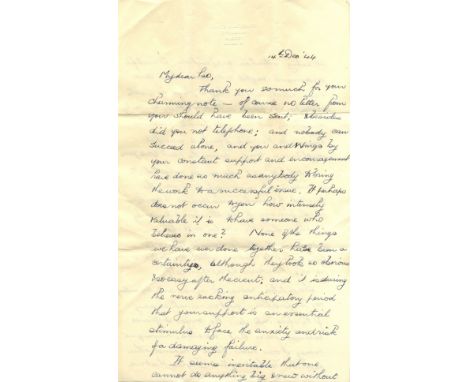 14th Dec '44
My dear
Thank you so much for your
charming note — of course no letter from
you should have been sent; & besides
did you not telephone; and nobody can
succeed alone, and you and Wings by
your constant support and encouragement
have done as much as anybody to bring
the work to a successful issue. It perhaps
does not occur to you how intensely
valuable it is to have someone who
believes in one? None of the things
we have ever done together have been a
certainty, although they look so obvious
& so easy after the event; and it is during
the nerve racking anticipatory period
that your support is an essential
stimulus to face the anxiety and risk
of a damaging failure.
It seems inevitable that one
cannot do anything big even without